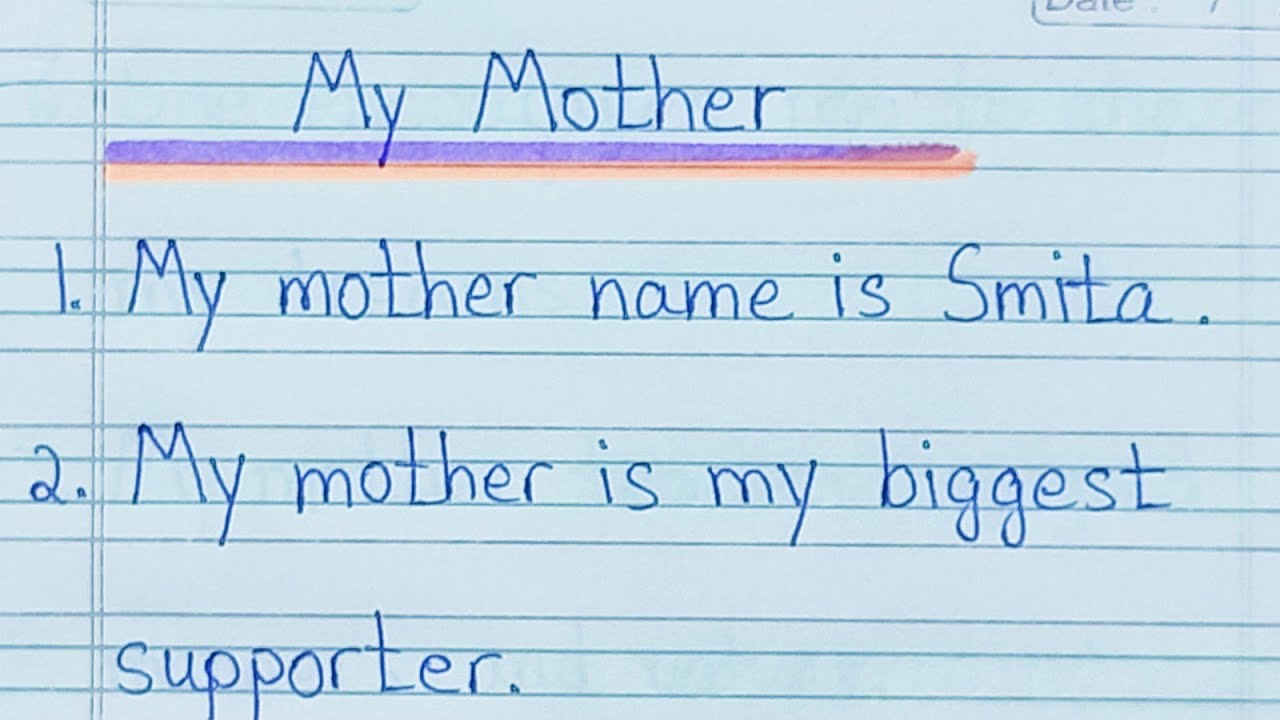 Date :
My Mother
1. My mother name is Smita.
2. My mother is my biggest
supporter.